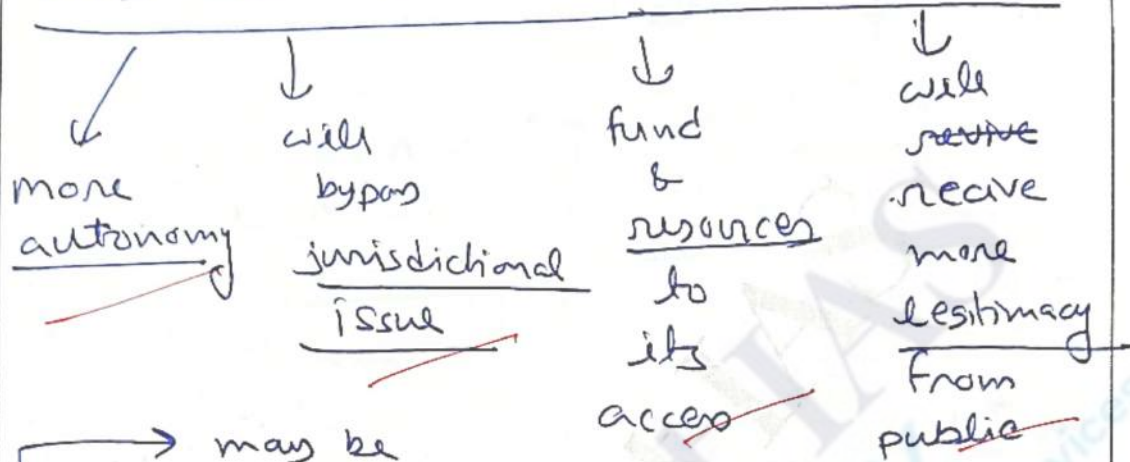 more
autonomy
will
bypass
jurisdictional
issue
fund
&
resources
to
its
access
will
revive
recive
more
lesitimacy
from
public
may be
IAS